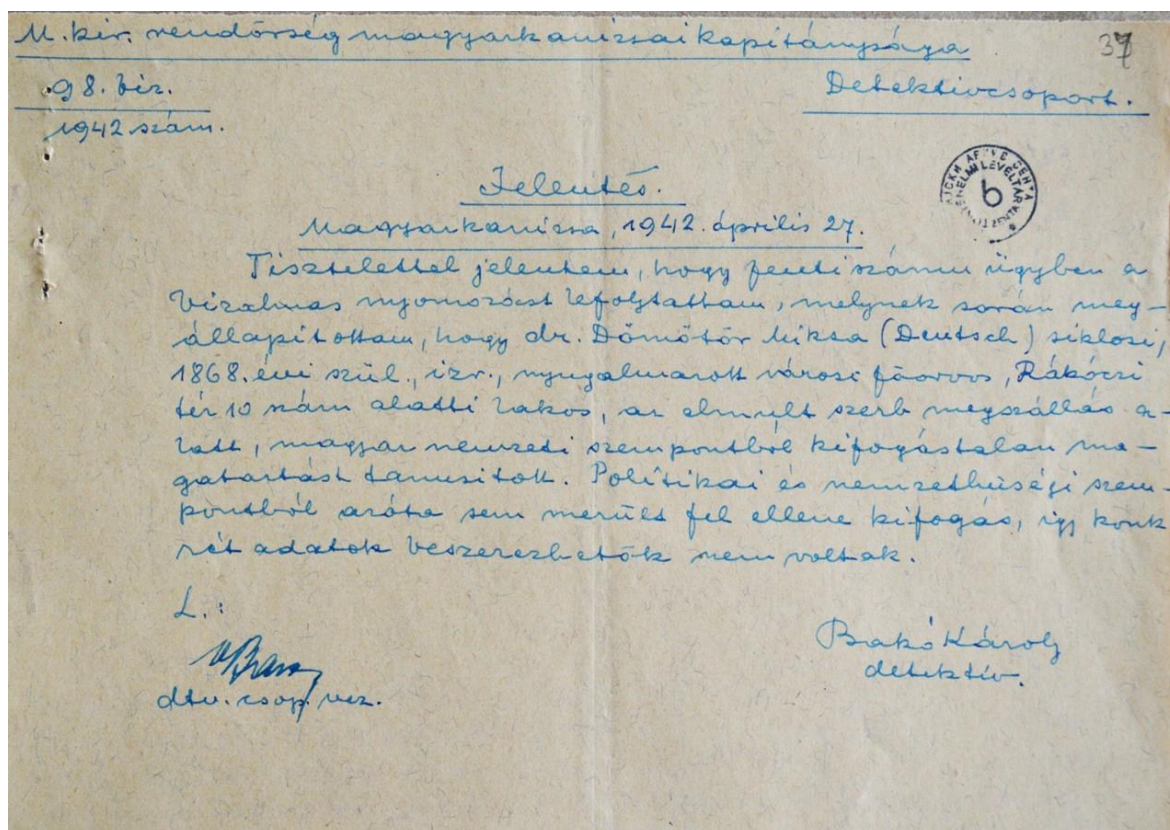 M. kir. rendőrség magyarkanizsai kapitánysága
37
98. biz.
1942 szám.
Detektivcsoport.
Jelentés.
Magyarkanizsa, 1942. április 27.
Tisztelettel jelentem, hogy fenti számu ügyben a
bizalmas nyomozást lefolytattam, melynek során meg-
állapitottam, hogy dr. Dömötör Miksa (Deutsch) siklosi,
1868. évi szül., izr., nyugalmazott városi főorvos, Rákóczi
tér 10 szám alatti lakos, az elmult szerb megszállás a-
latt, magyar nemzeti szempontból kifogástalan ma-
gatartást tanusitott. Politikai és nemzethüségi szem-
pontból azóta sem merült fel ellene kifogás, igy konk
rét adatok beszerezhetők nem voltak.
L.:
dtv. csop. vez.
Bakó Károly
detektiv.